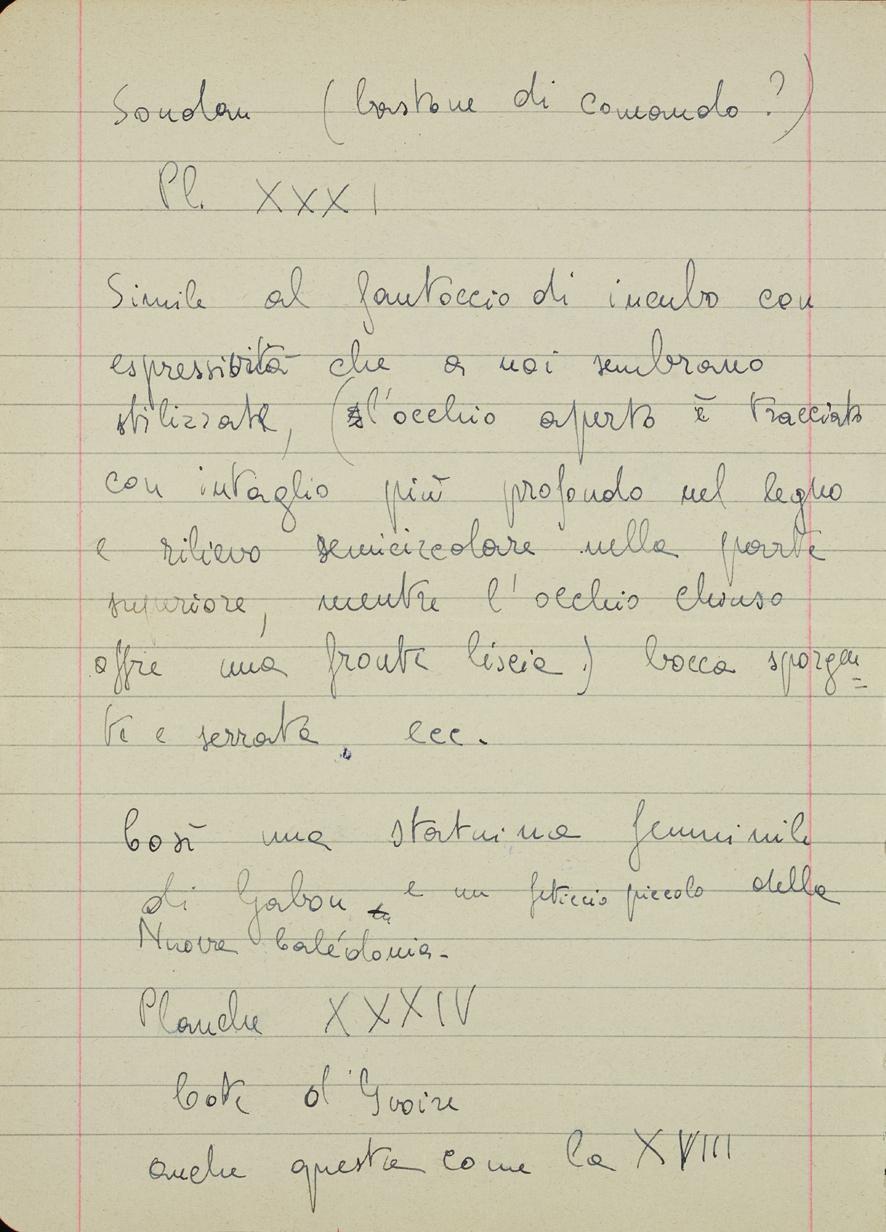 Soudan (bastone di comando?)
Pl. XXXI
Simile al fantoccio di incubo con
espressività che a noi sembrano
stilizzate, (l'occhio aperto è tracciato
con intaglio più profondo nel legno
e rilievo semicircolare nella parte
superiore, mentre l'occhio chiuso
offre una fronte liscia) bocca sporgen=
te e serrata, ecc.
Così una statuina femminile
di Gabon e un feticcio piccolo della
Nuova Calédonia.
Planche XXXIV
Cote d'Ivoire
anche questa come la XVIII